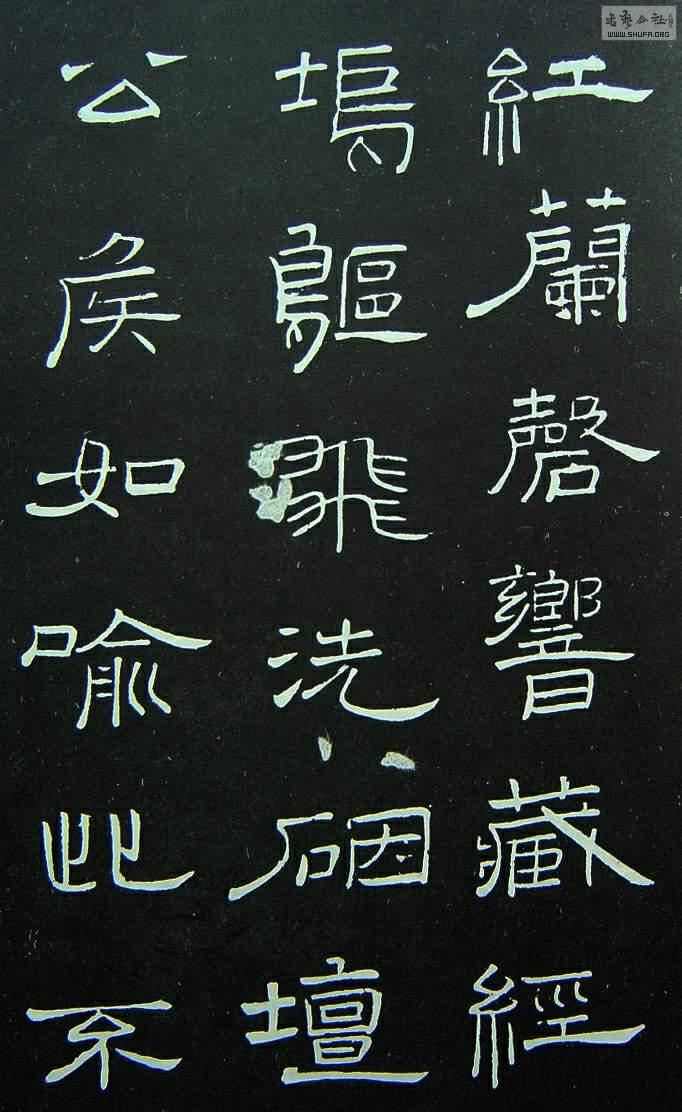 書藝公社
WWW.SHUFA.ORG
紅蘭磬響藏經
塢鷗飛洗壇
公侯如喻此不